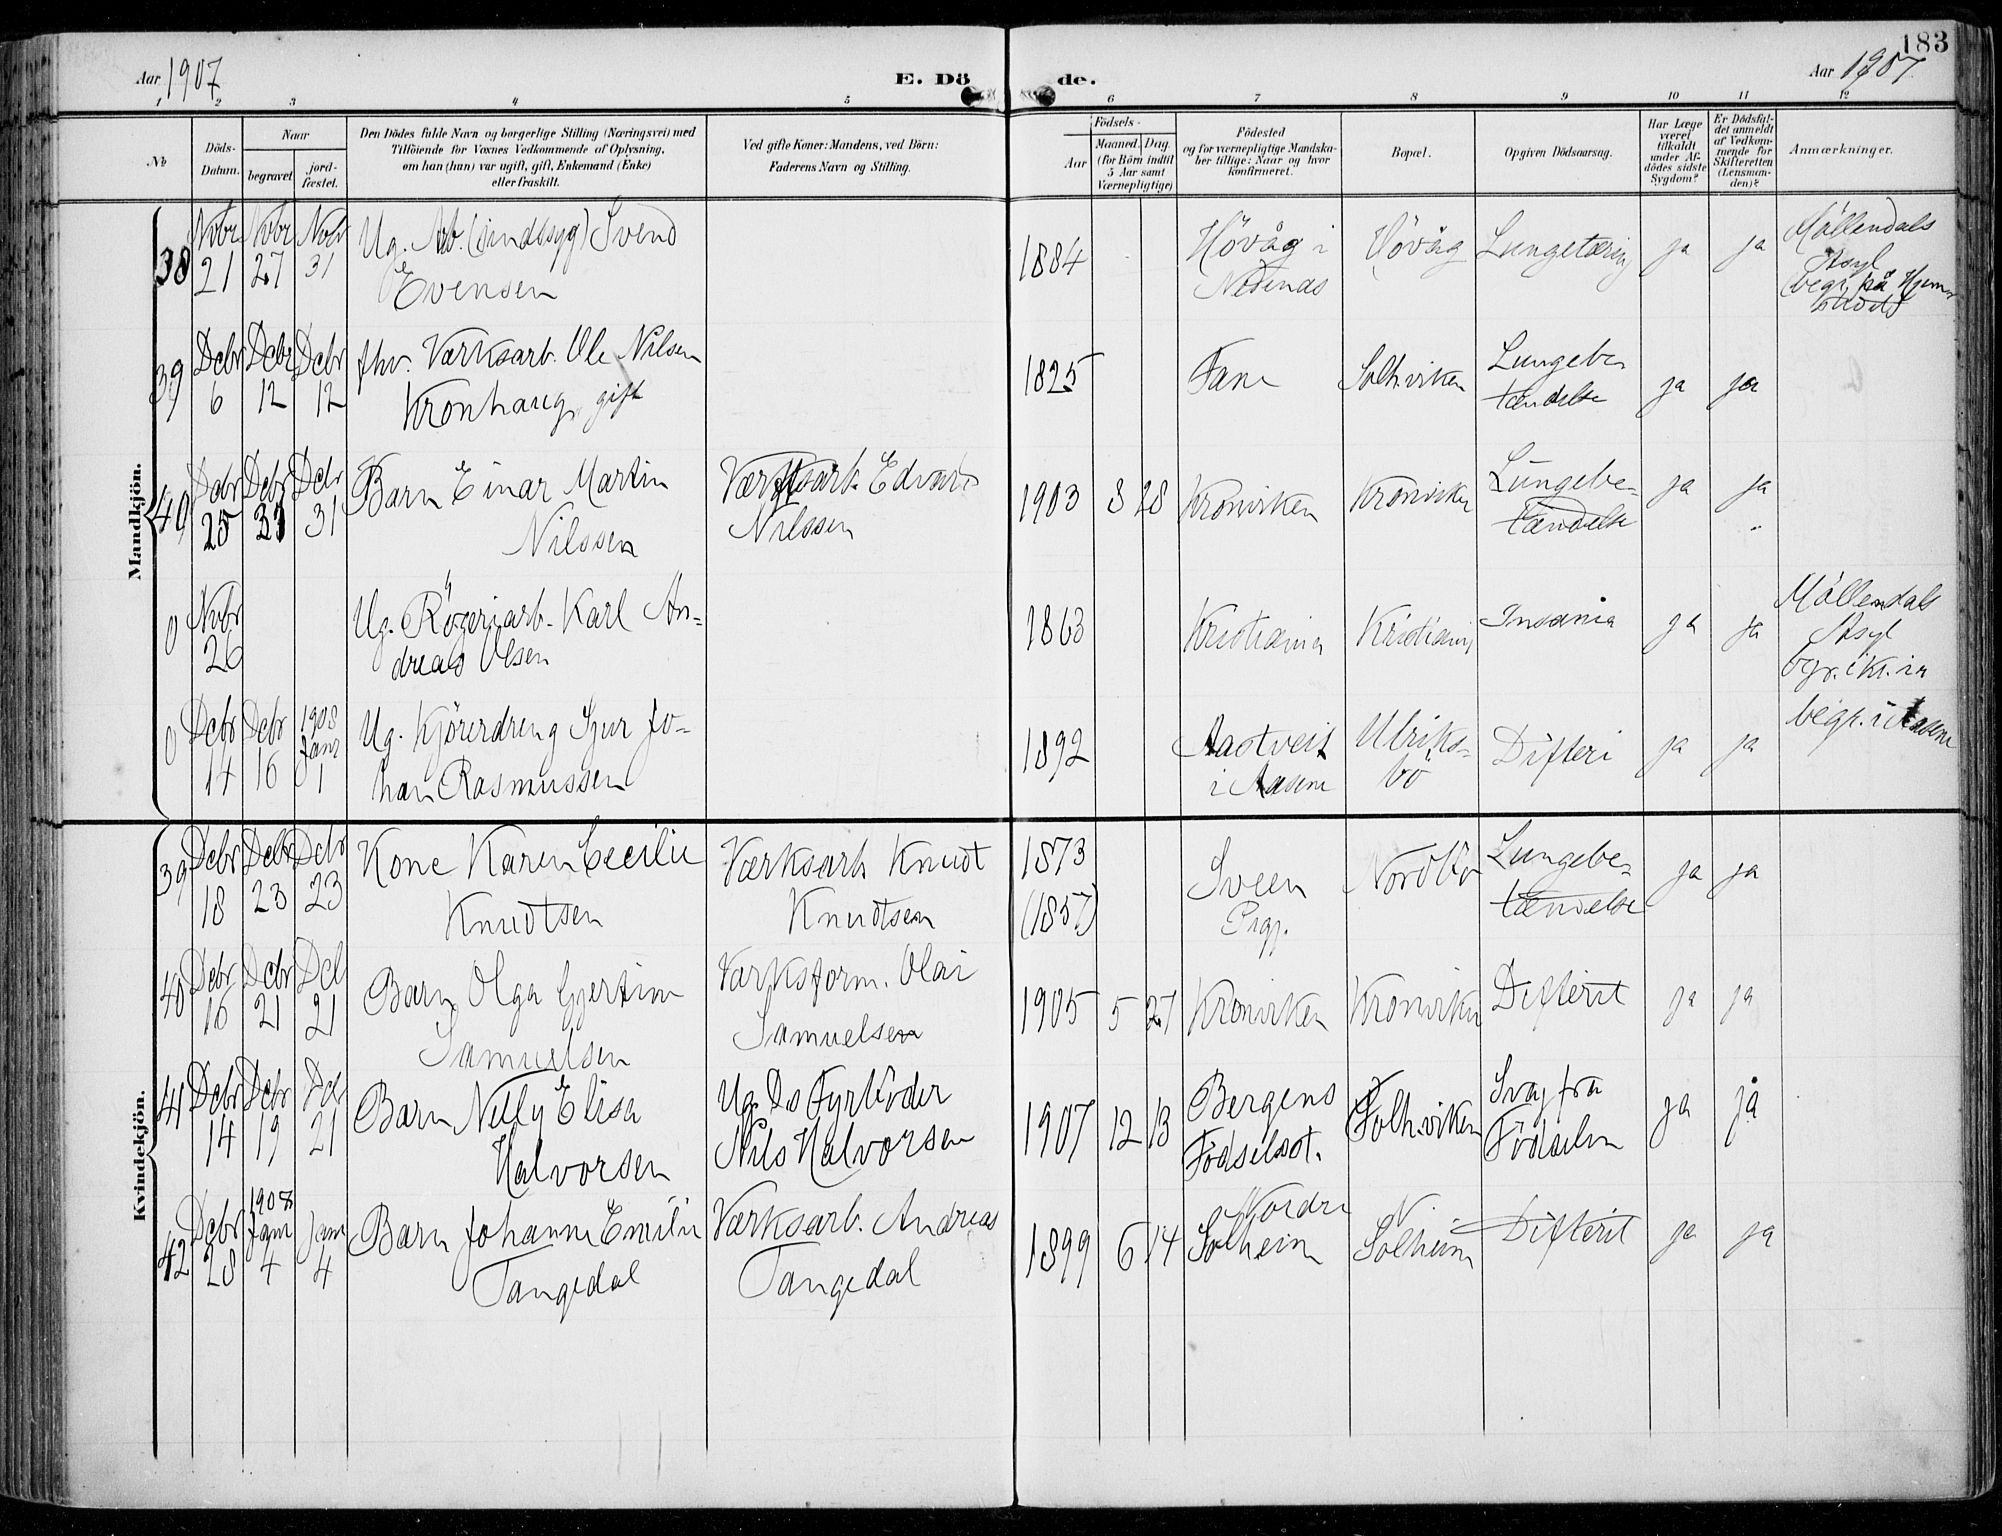 183
Aar 1907
E. Dö de.
Aar 1907
1 2 3 4 5 6 7 8 9 10 11 12
No
Döds-Datum.
Naar
begravet
jord-fæstet.
Den Dödes fulde Navn og borgerlige Stilling (Næringsvei) med
Tilföiende for Voxnes Vedkommende af Oplysning,
om han (hun) var ugift, gift, Enkemand (Enke)
eller fraskilt.
Ved gifte Koner: Mandens, ved Börn:
Faderens Navn og Stilling.
Födsels-
Aar
Maaned. Dag.
(for Börn indtil
5 Aar samt
Værnepligtige)
Födested
og for værnepligtige Mandska-
ber tillige: Naar og hvor
konfirmeret.
Bopæl.
Opgiven Dödsaarsag.
Har Læge
været
tilkaldt
under Af-
dödes sidste
Sygdom?
Er Dödsfal-
det anmeldt
af Vedkom-
mende for
Skifteretten
(Lensman-
den)?
Anmærkninger.
Mandkjön.
38 Novbr 21 Novbr 27 Novbr 31 Ug. Arb. (sindssyg) Svend
Evensen
1884 Hövåg i
Nedenæs Hövåg Lungetæring ja ja Möllendals
Asyl
begr. på Hjem-
stedet
39 Decbr 6 Decbr 12 Decbr 12 fhv. Værksarb. Ole Nilsen
Kronhaug, gift
1825 Fane Solh.viken Lungebe-
tændelse ja ja
40 Decbr 25 Decbr 31 Decbr 31 Barn Einar Martin
Nilssen
Værksarb. Edvard
Nilssen
1903 8 28 Kronviken Kronviken Lungebe-
tændelse ja ja
0 Novbr 26 Ug. Rögeriarb. Karl An-
dreas Olsen
1863 Kristiania Kristiania Insania ja ja Möllendals
Asyl
bgr. i Kr.ia
0 Decbr 14 Decbr 16 1908 Janr 1 Ug. Kjörerdreng Sjur Jo-
han Rasmussen
1892 Aastveit
i Aasene Ulriks-
bö Difteri ja ja begr. i Aasene
Kvindekjön.
39 Decbr 18 Decbr 23 Decbr 23 Kone Karen Cecilie
Knudtsen
Værksarb. Knudt
Knudtsen
1873
(1857) Sveen
Prgj. Nordbö Lungebe-
tændelse ja ja
40 Decbr 16 Decbr 21 Decb 21 Barn Olga Gjertine
Samuelsen
Værksform. Olai
Samuelsen
1905 5 27 Kronviken Kronviken Difterit ja ja
41 Decbr 14 Decbr 19 Decbr 21 Barn Nelly Elisa
Halvorsen
Ug. Ds Fyrböder
Nils Halvorsen
1907 12 13 Bergens
Födselsst. Solh.viken Svag fra
Födselen ja ja
42 Decbr 28 1908 Janr 4 Janr 4 Barn Johanne Emilie
Tangedal
Værksarb. Andreas
Tangedal
1899 6 14 Nordre
Solheim N.
Solheim Difterit ja ja